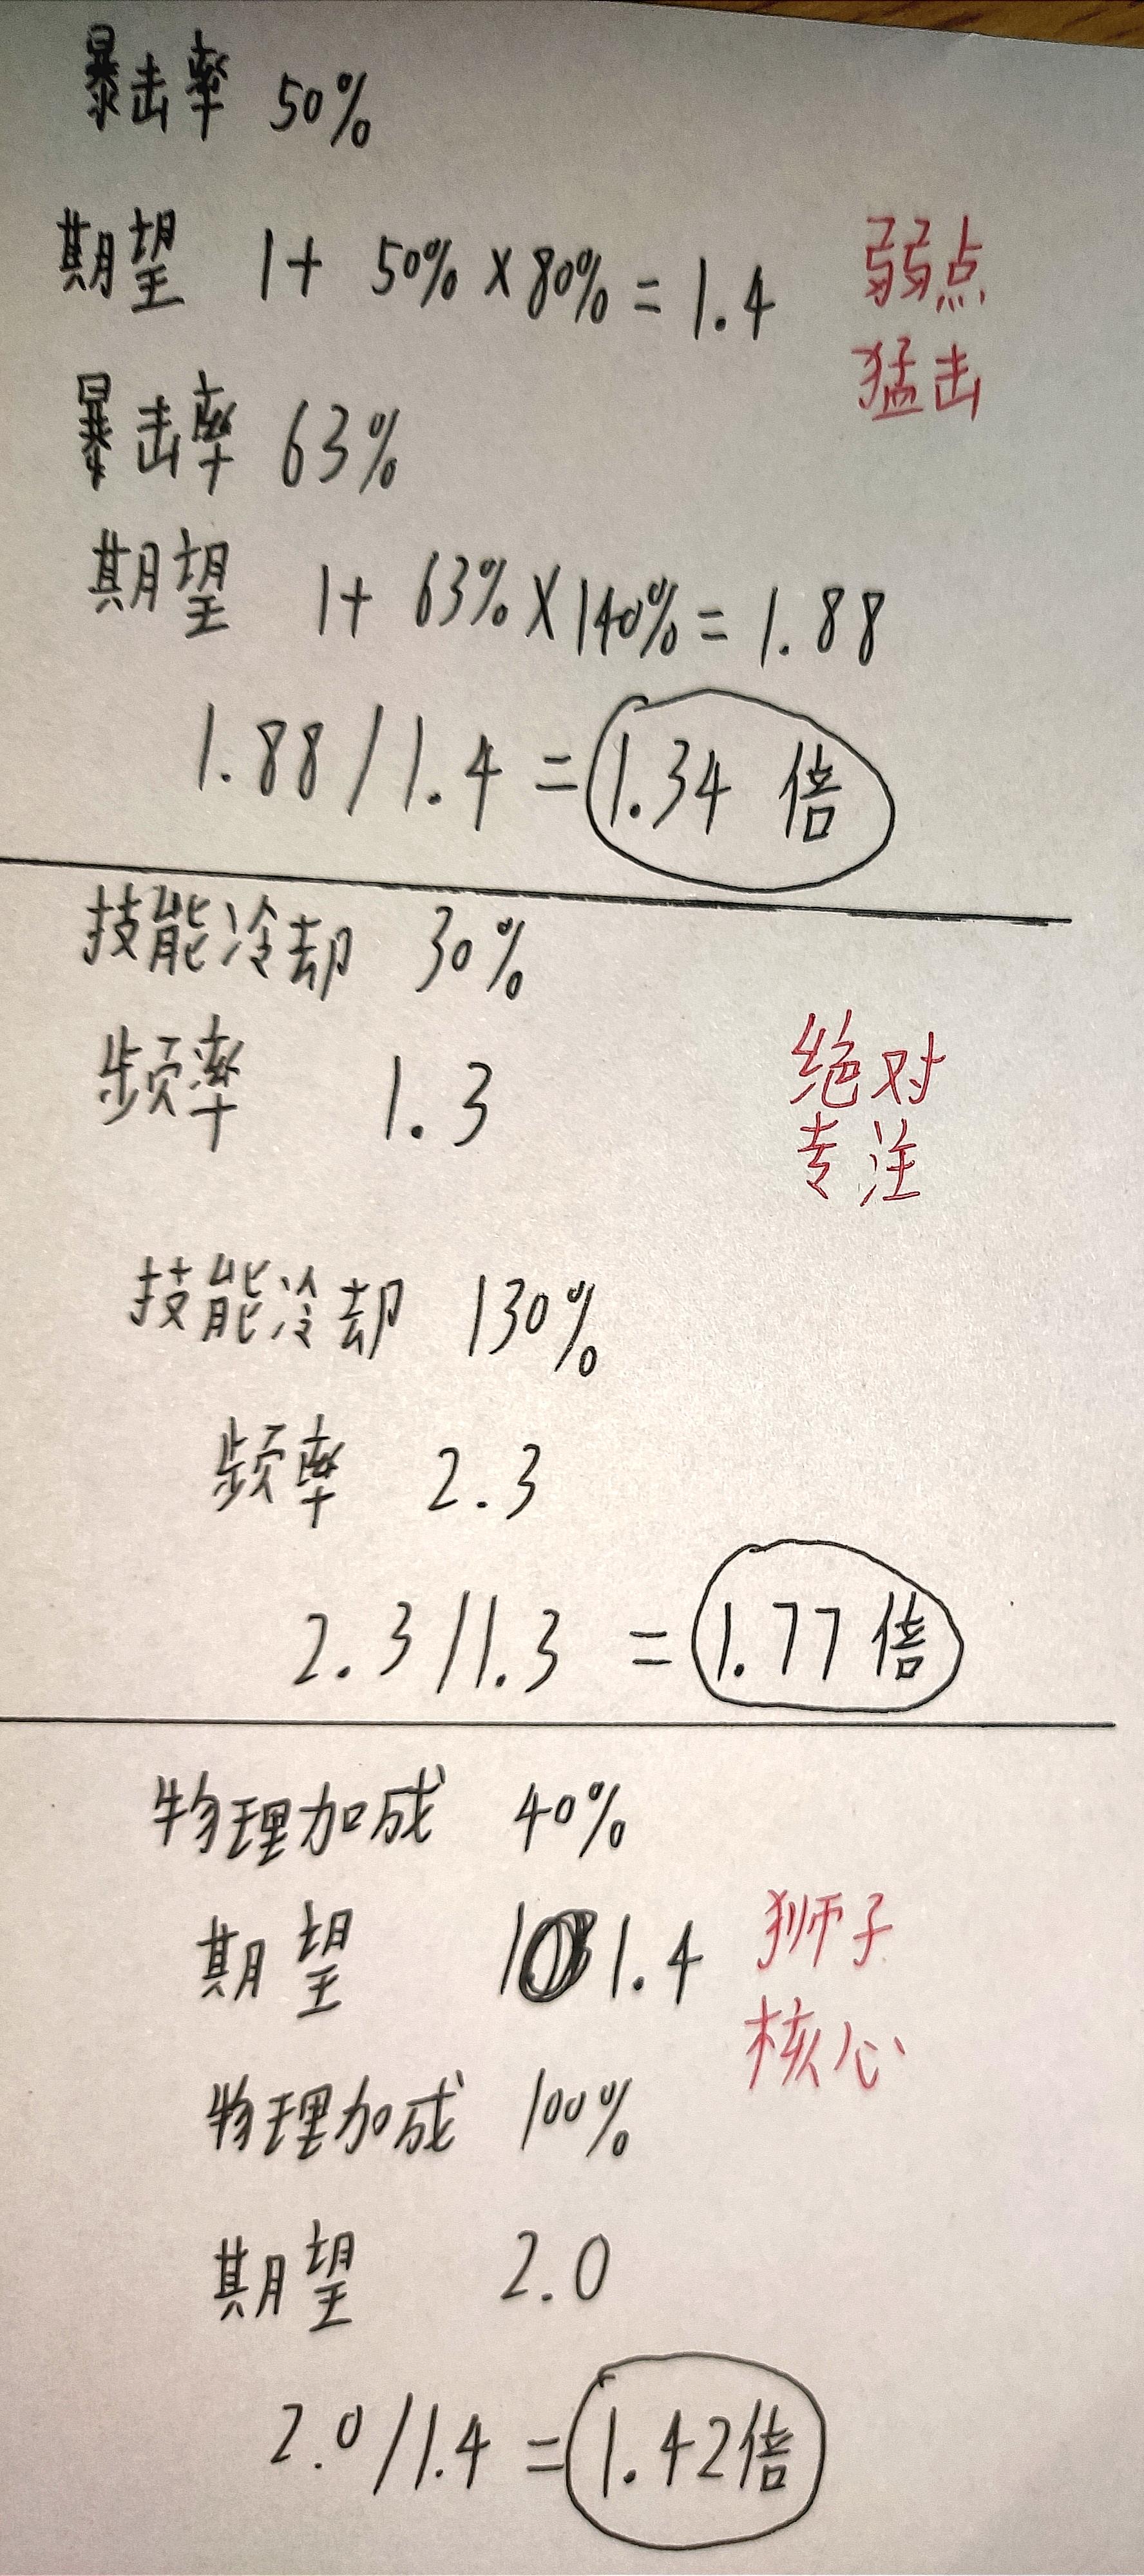 暴击率 50%
期望 1+ 50% ×80% = 1.4
弱点
猛击
暴击率 63%
期望 1+ 63% ×140% = 1.88
1.88 / 1.4 = 1.34 倍
技能冷却 30%
频率 1.3
绝对
专注
技能冷却 130%
频率 2.3
2.3 / 1.3 = 1.77 倍
物理加成 40%
期望 1.4
狮子
核心
物理加成 100%
期望 2.0
2.0 / 1.4 = 1.42倍